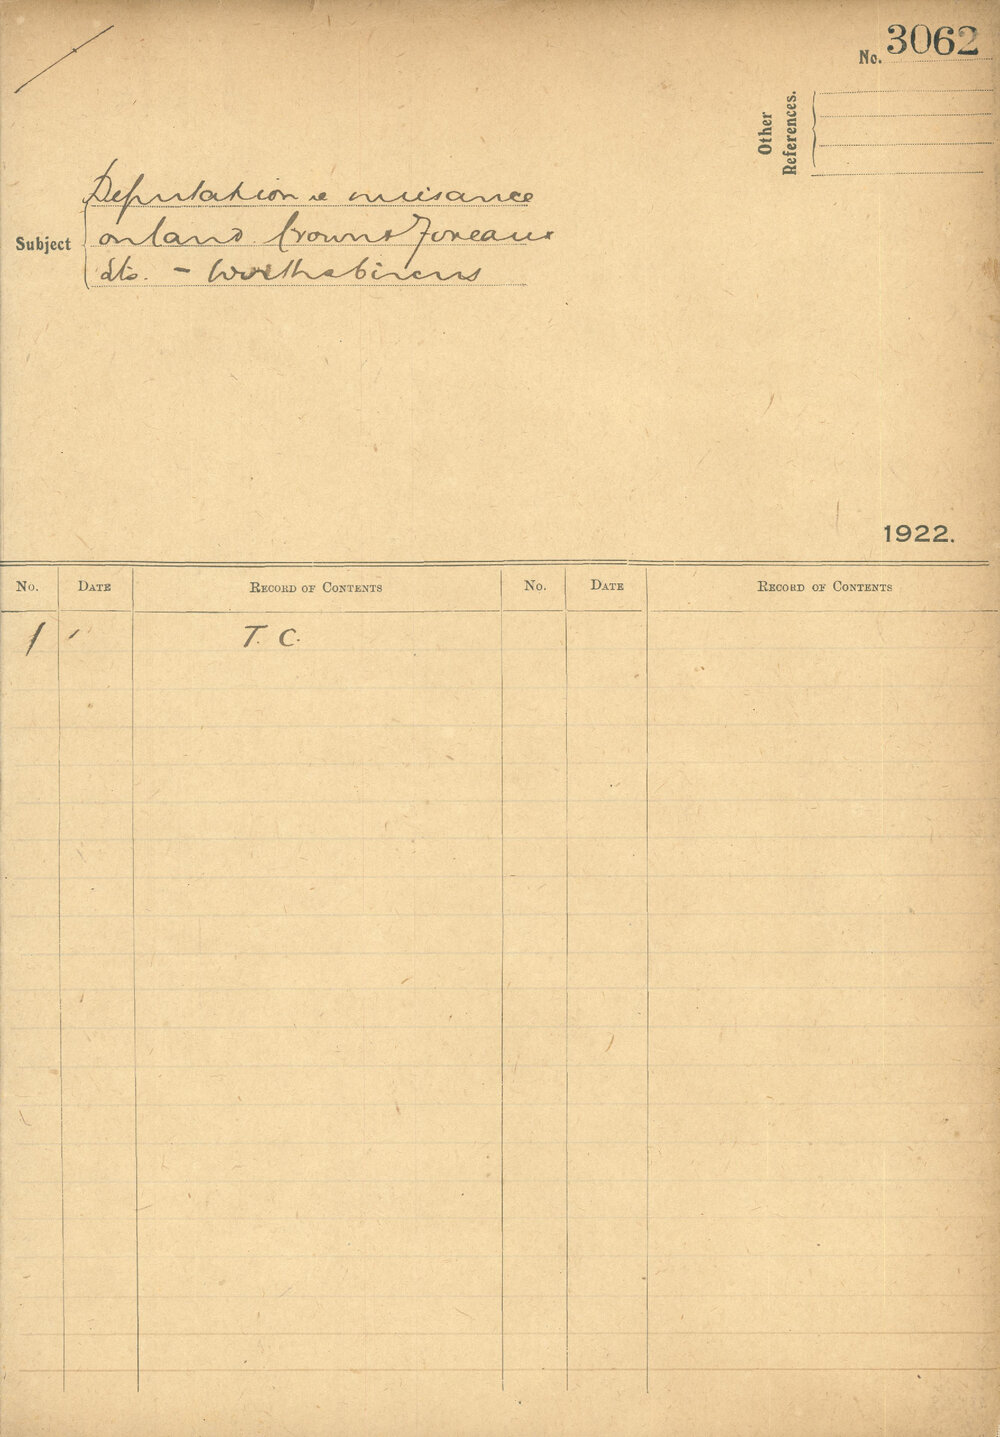 No. 3062
Other
References.
Deputation re nuisance
Subject on land Crown & Foveaux
Sts. -
1922.
No. Date Record of Contents No. Date Record of Contents
1 T. C.